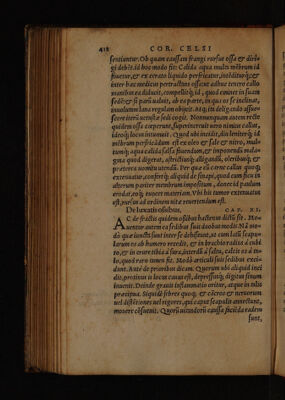 412 COR. CELSI
sentiuntur. Ob quam caussam frangi rursus ossa & diri-
gi debēt. id hoc modo fit: Calida aqua multa mēbrum id
fouetur, & ex cerato liquido perfricatur,
inter hæc medicus pertractans ossa ut adhuc tenero callo
manibus ea diducit, compellitq; id, quod eminet in suam
sedē: & si parū ualuit, ab ea parte, in quā os se inclinat,
inuolutam lana regulam obijcit. Atq; ita deligando assue-
scere iterū uetustæ sedi cogit. Nonnunquam autem recte
quidem ossa coierunt, superincreuit uero nimius callus,
ideoq; locus intumuit. Quod ubi incidit, diu leniterq; id
mēbrum perfricādum est ex oleo & sale & nitro, mul-
tumq; aqua calida salsa fouendum, & imponendū mala-
gma quod digerat, astrictiusq; alligandū, oleribusq; &
præterea uomitu utendū. Per quæ cū carne callus quoq;
extenuatur, confertq; aliquid de sinapi, quod cum ficu in
alterum pariter membrum impositum, donec id paulum
erodat, eoq; euocet materiam. Vbi his tumor extenuatus
est, rursus ad ordinem uitæ reuertendum est.
De luxatis ossibus, CAP. XI.
AC de fractis quidem ossibus hactenus dictū sit. Mo-
uentur autem ea sedibus suis duobus modis. Nā mo-
dò quæ iuncta sunt inter se dehiscunt, ut cum latū scapu-
larum os ab humero recedit, & in brachio radius à cubi-
to, & in crure tibia à sura, interdū à saltu, calcis os à ta-
lo, quod raro tamen fit. Modò articuli suis sedibus exci-
dunt. Ante de prioribus dicam. Quorum ubi aliquid inci-
dit, protinus is locus cauus est, depressusq; digitus sinum
inuenit. Deinde grauis inflammatio oritur, atque in talis
præcipue. Siquidē febres quoq; & cācros & neruorum
uel distētiones uel rigores, qui caput scapulis annectunt,
mouere cōsueuit. Quorū uitandorū caussa facienda eadem
sunt,